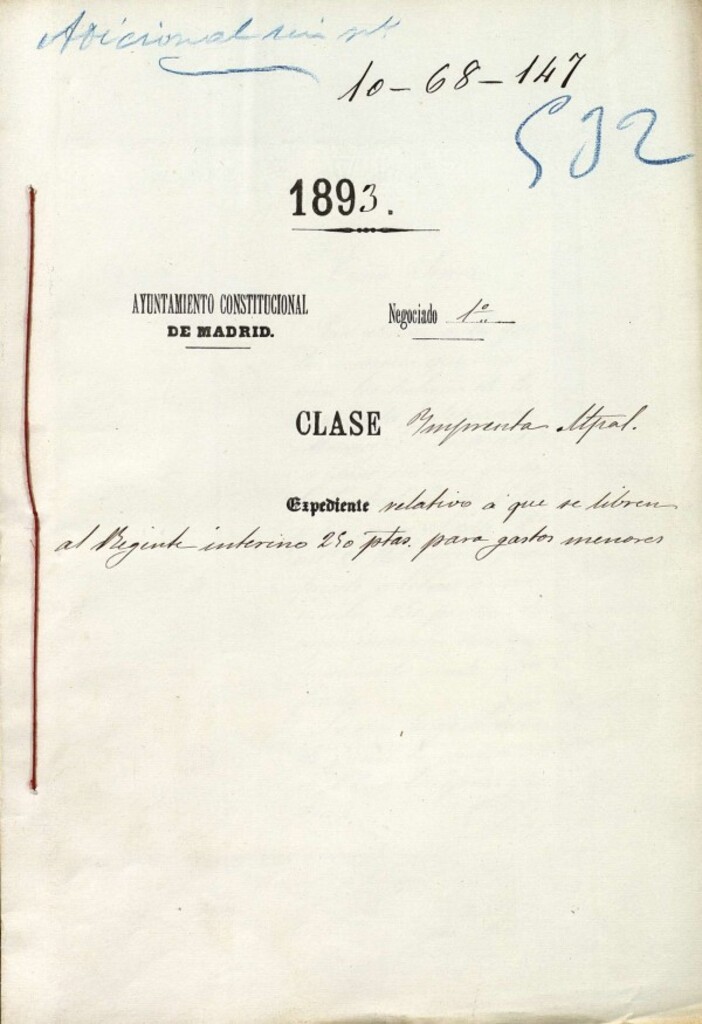 Adicional
10-68-147
532
1893.
AYUNTAMIENTO CONSTITUCIONAL
DE MADRID.
Negociado 1º
CLASE Imprenta Mpal.
Expediente relativo á que se libren
al Regente interino 250 ptas. para gastos menores